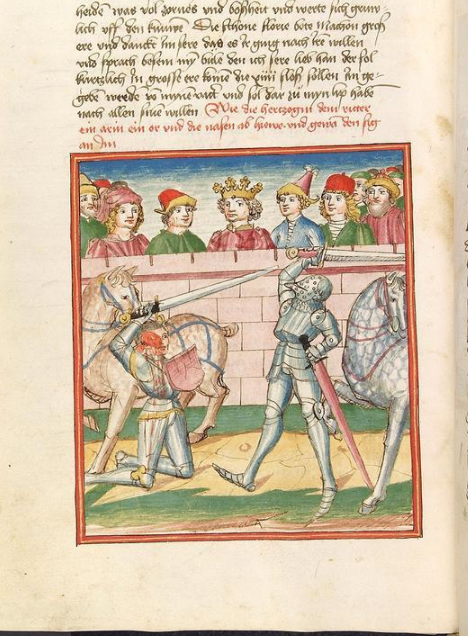 heiden was vol zornes und boßheit und werte sich grim¬
lich uff den künne Die schöne störie bote Machon groß
ere und danckt im sere das es ir ging nach ire willen
und sprach besem my bule den ich sere lieb han der sol
kurtzlich in grosse ere kome die xiiii sloß sollen im ge¬
gebe werde vo myne vatt und sol dar zu myn lip habe
nach allen sine willen Wie die hertzogin dem ritter
ein arm ein or und die nasen ab hiewe und gewan den sig
an Im